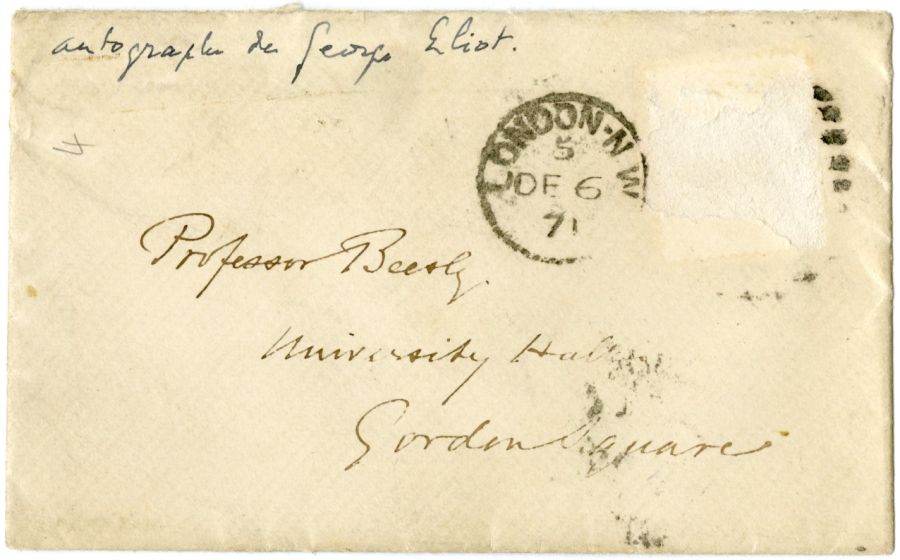 autographe de George Eliot.
4
LONDON·N.W
5
DE 6
71
Professor Beesly
University Hall
Gordon Square